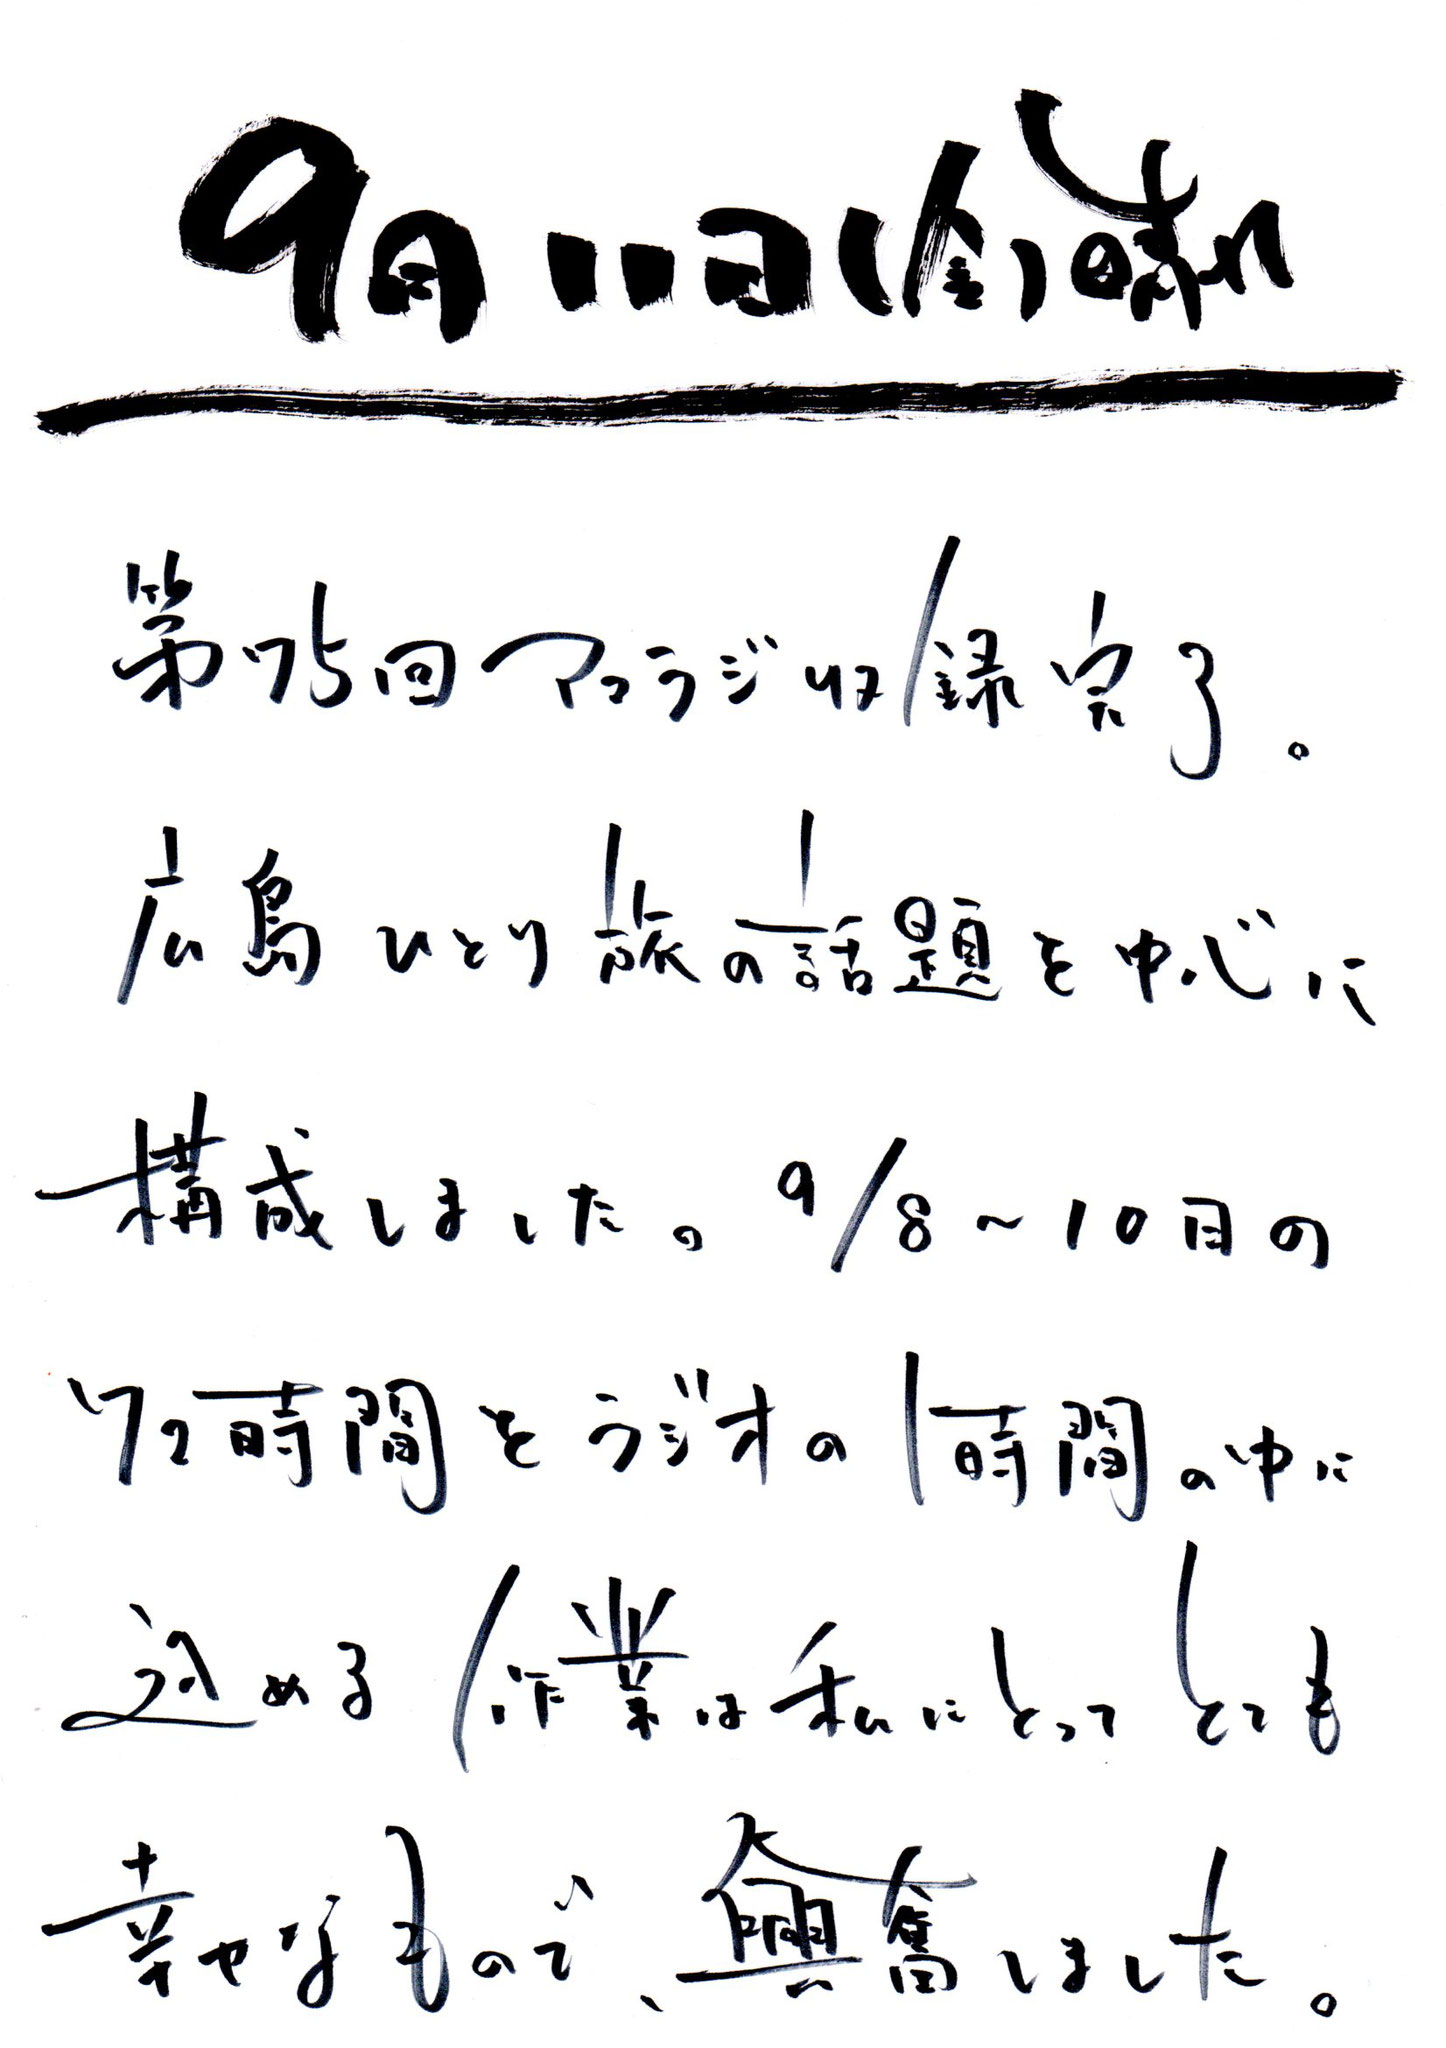 9月11日(金)晴れ
第75回マコラジ収録完了。
広島ひとり旅の話題を中心に
構成しました。9/8~10日の
72時間をラジオの1時間の中に
込める作業は私にとってとても
幸せなもので、興奮しました。